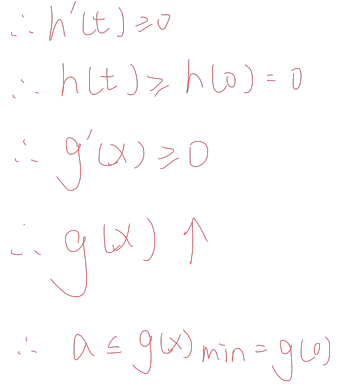 ∴ h'(t) ≥ 0
∴ h(t) ≥ h(0) = 0
∴ g'(x) ≥ 0
∴ g(x) ↑
∴ a ≤ g(x) min = g(0)